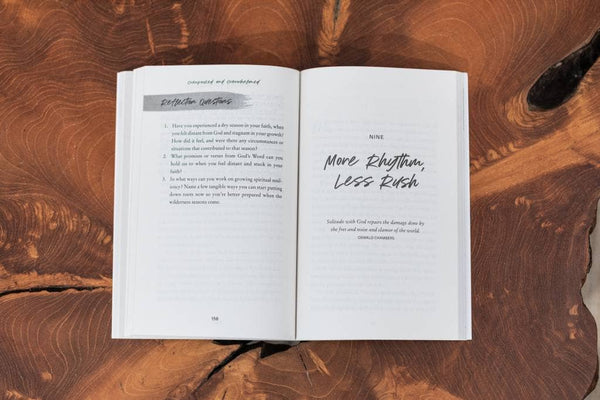 Overpacked and Overwhelmed
Reflection Questions
1. Have you experienced a dry season in your faith, when
you felt distant from God and stagnant in your growth?
How did it feel, and were there any circumstances or
situations that contributed to that season?
2. What promises or verses from God's Word can you
hold on to when you feel distant and stuck in your
faith?
3. In what ways can you work on growing spiritual resil-
iency? Name a few tangible ways you can start putting
down roots now so you're better prepared when the
wilderness seasons come.
158
NINE
More Rhythm,
Less Rush
Solitude with God repairs the damage done by
the fret and noise and clamor of the world.
OSWALD CHAMBERS